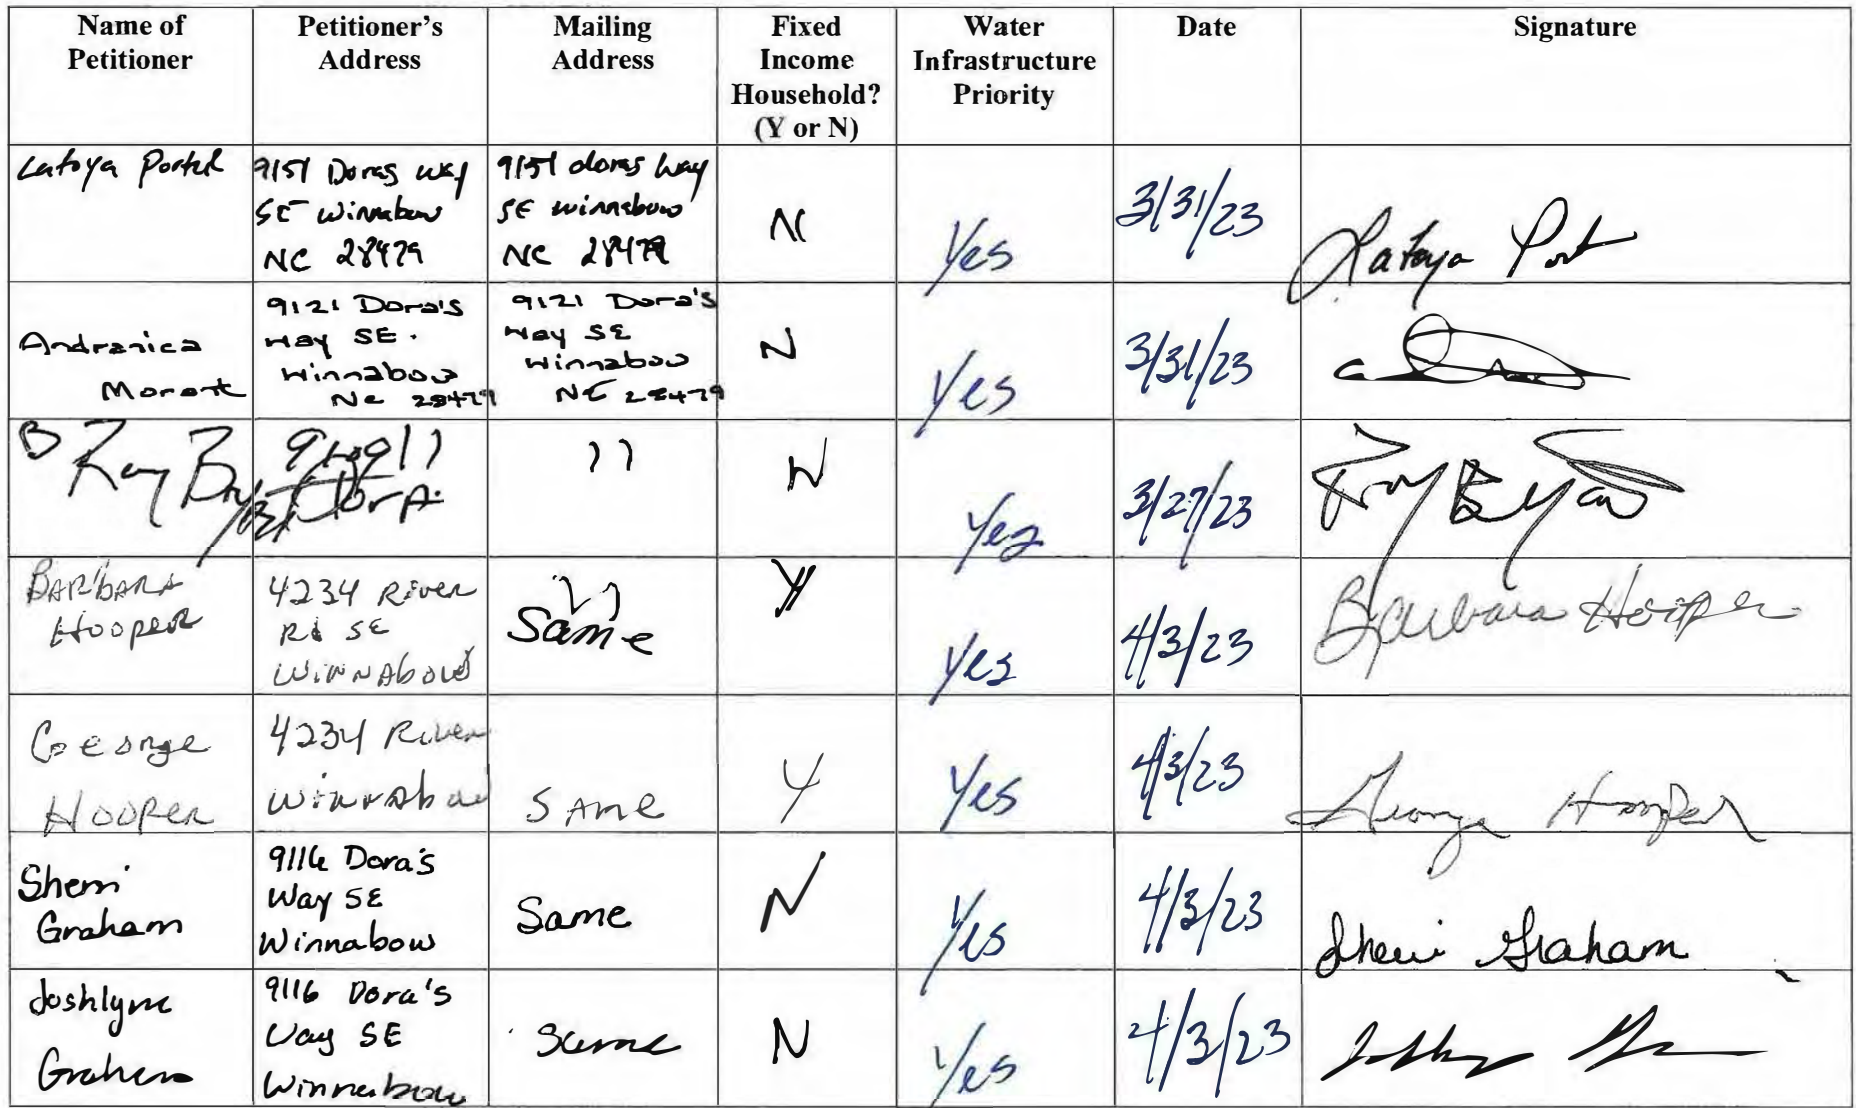 Name of Petitioner
Petitioner's Address
Mailing Address
Fixed Income Household? (Y or N)
Water Infrastructure Priority
Date
Signature
Latoya
9151 Doras Way
SE Winnabow
NC 28479
9151 doras Way
SE winnabow
NC 28479
N
Yes
3/31/23
Latoya
Andranica
9121 Dora's
Way SE.
Winnabow
NC 28479
9121 Dora's
Way SE
Winnabow
NC 28479
N
Yes
3/31/23
B Ray
Dora
11
N
Yes
3/27/23
BARBARA
Hooper
4234 River
Rd SE
WINNABOW
11
Same
Y
Yes
4/3/23
Barbara Hooper
George
Hooper
4234 River
Winnabow
SAme
Y
Yes
4/3/23
George Hooper
Sherri
Graham
9116 Dora's
Way SE
Winnabow
Same
N
Yes
4/3/23
Sherri Graham
Joshlyne
Graham
9116 Dora's
Way SE
Winnabow
Same
N
Yes
4/3/23